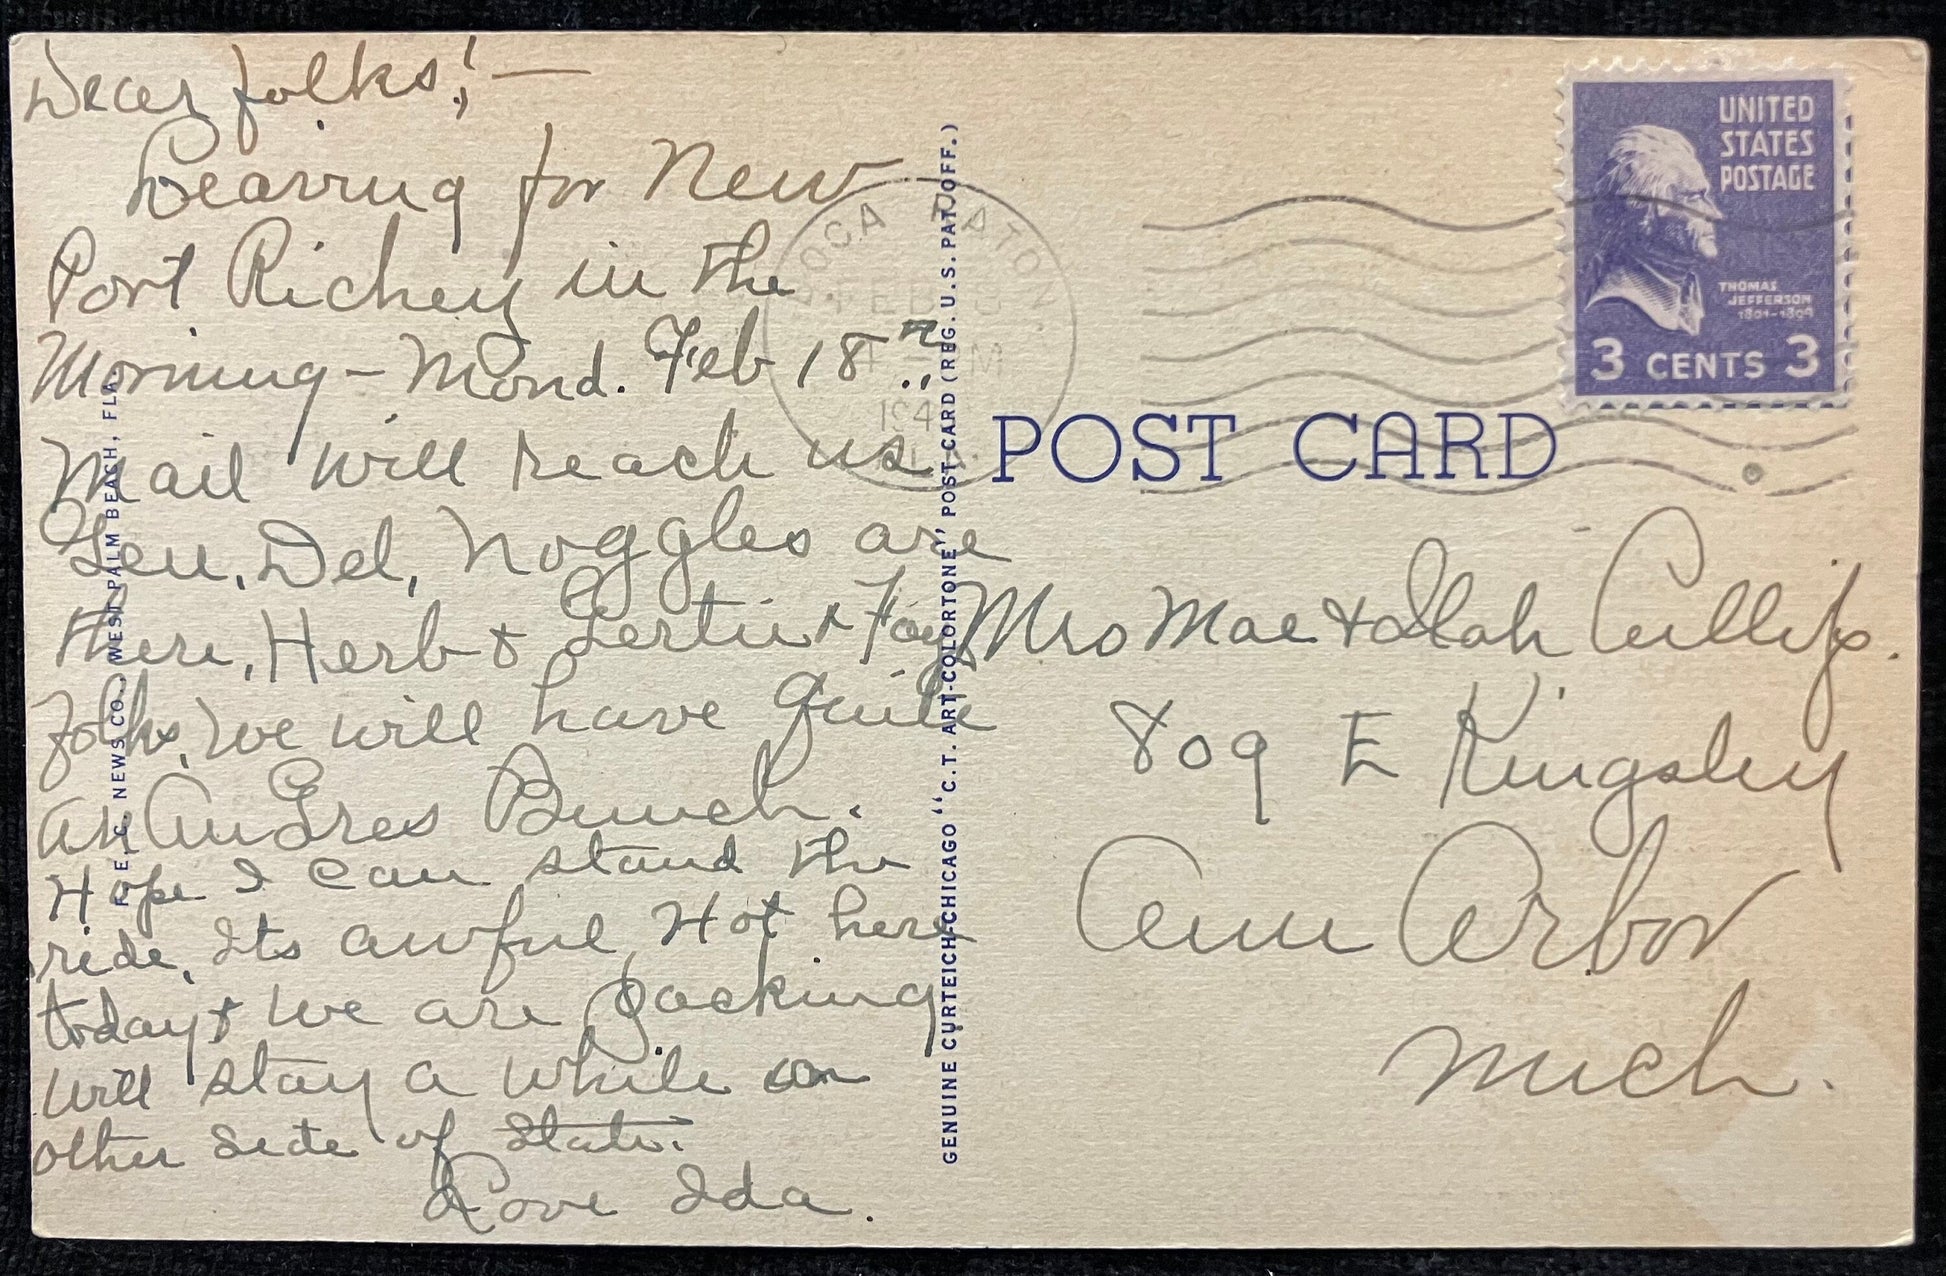 Dear folks! —
Leaving for New
Port Richey in the
Morning - Mond. Feb 18th
Mail will reach us
Gen. Del, Noggles are
there, Herb & Gertie & Fay
folks, We will have quite
an Bunch.
Hope I can stand the
ride, Its awful Hot here
today & we are packing
Will stay a while on
other side of State.
Love Ida.
F. E. C. NEWS CO., WEST PALM BEACH, FLA.
GENUINE CURTEICH-CHICAGO "C.T. ART-COLORTONE" POST CARD (REG. U.S. PAT. OFF.)
BOCA RATON
FEB
PM
194
FLA.
UNITED
STATES
POSTAGE
THOMAS
JEFFERSON
1801-1809
3 CENTS 3
POST CARD
Mrs Mae & Ilah Cullip.
809 E Kingsley
Ann Arbor
Mich.